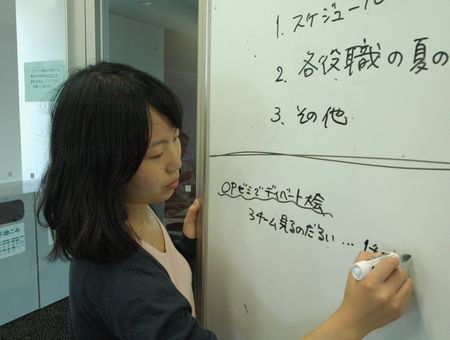 1. スケジュール
2. 各役職の夏の
3. その他
OPゼミでディベート大会
3チーム見るのだるい…